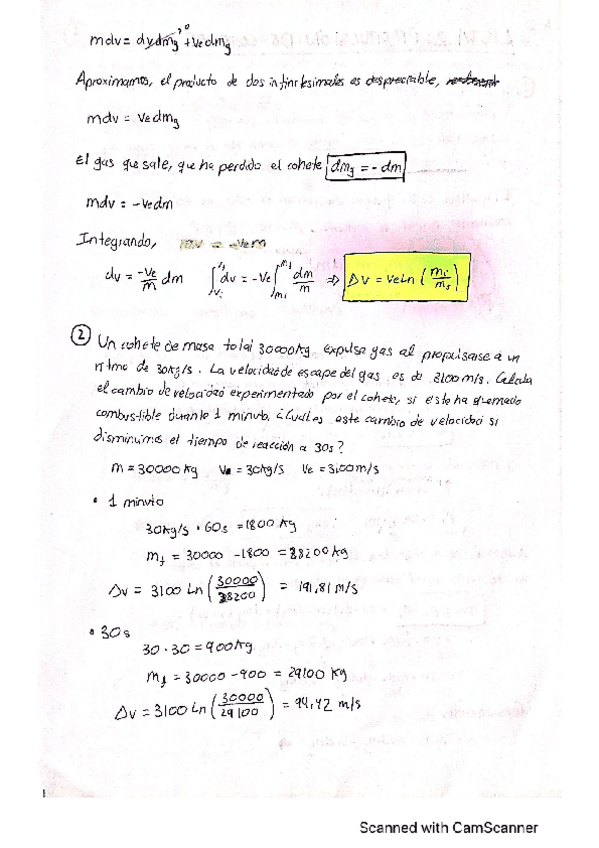 mdv = dvdmg + vedmg
Aproximamos, el producto de dos infinitesimales es despreciable,
mdv = vedmg
El gas que sale, que ha perdido el cohete dmg = - dm
mdv = -vedm
Integrando, mv = -vem
dv = -ve/m dm ∫ dv = -ve ∫ dm/m ⇒ Δv = veLn (mi/mf)
② Un cohete de masa total 30000kg expulsa gas al propulsarse a un
ritmo de 30kg/s. La velocidad de escape del gas es de 3100 m/s. Calcula
el cambio de velocidad experimentado por el cohete, si este ha quemado
combustible durante 1 minuto. ¿Cuál es este cambio de velocidad si
disminuimos el tiempo de reacción a 30s?
m = 30000 kg = 30kg/s Ve = 3100 m/s
• 1 minuto
30kg/s · 60s = 1800 kg
mf = 30000 - 1800 = 28200 kg
Δv = 3100 Ln (30000/28200) = 191,81 m/s
• 30s
30 · 30 = 900kg
mf = 30000 - 900 = 29100 kg
Δv = 3100 Ln (30000/29100) = 94,42 m/s
Scanned with CamScanner